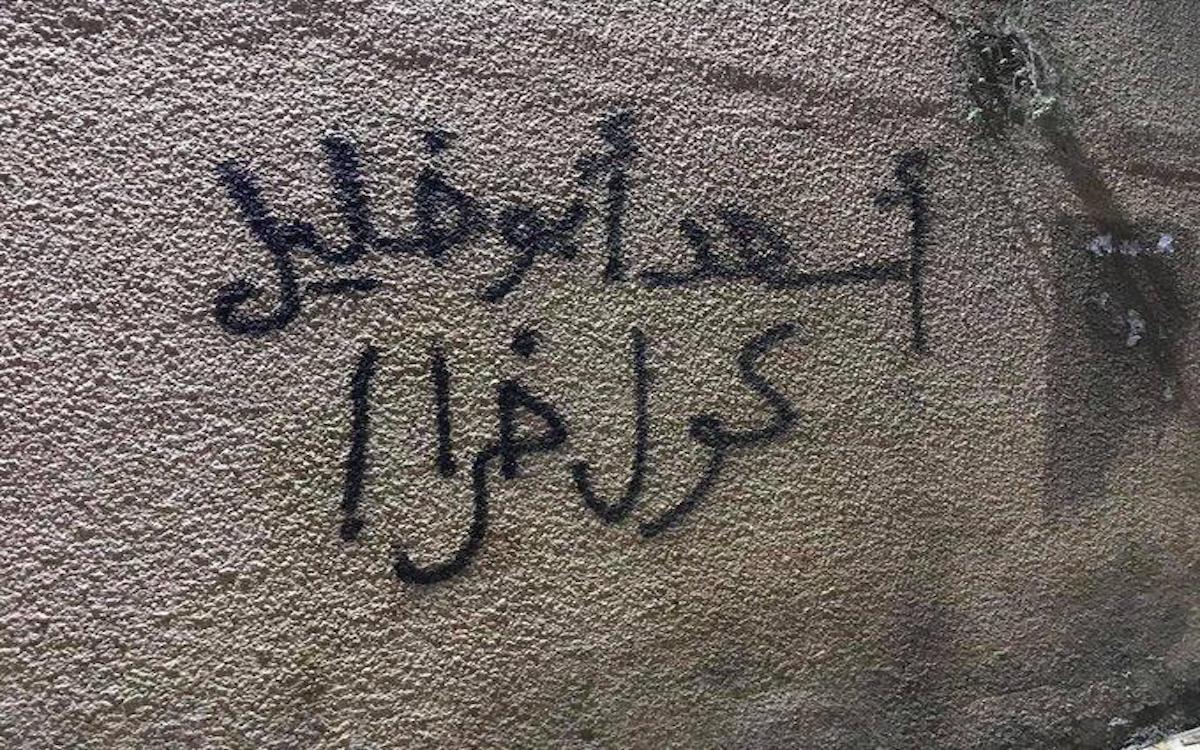 أسعد أبو خليل
كول خرا!